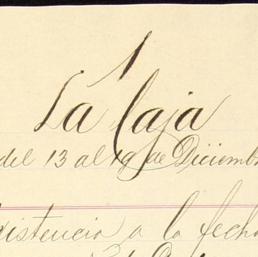 1
La Caja
del 13 al 19 de Diciemb
xistencia a la fecha